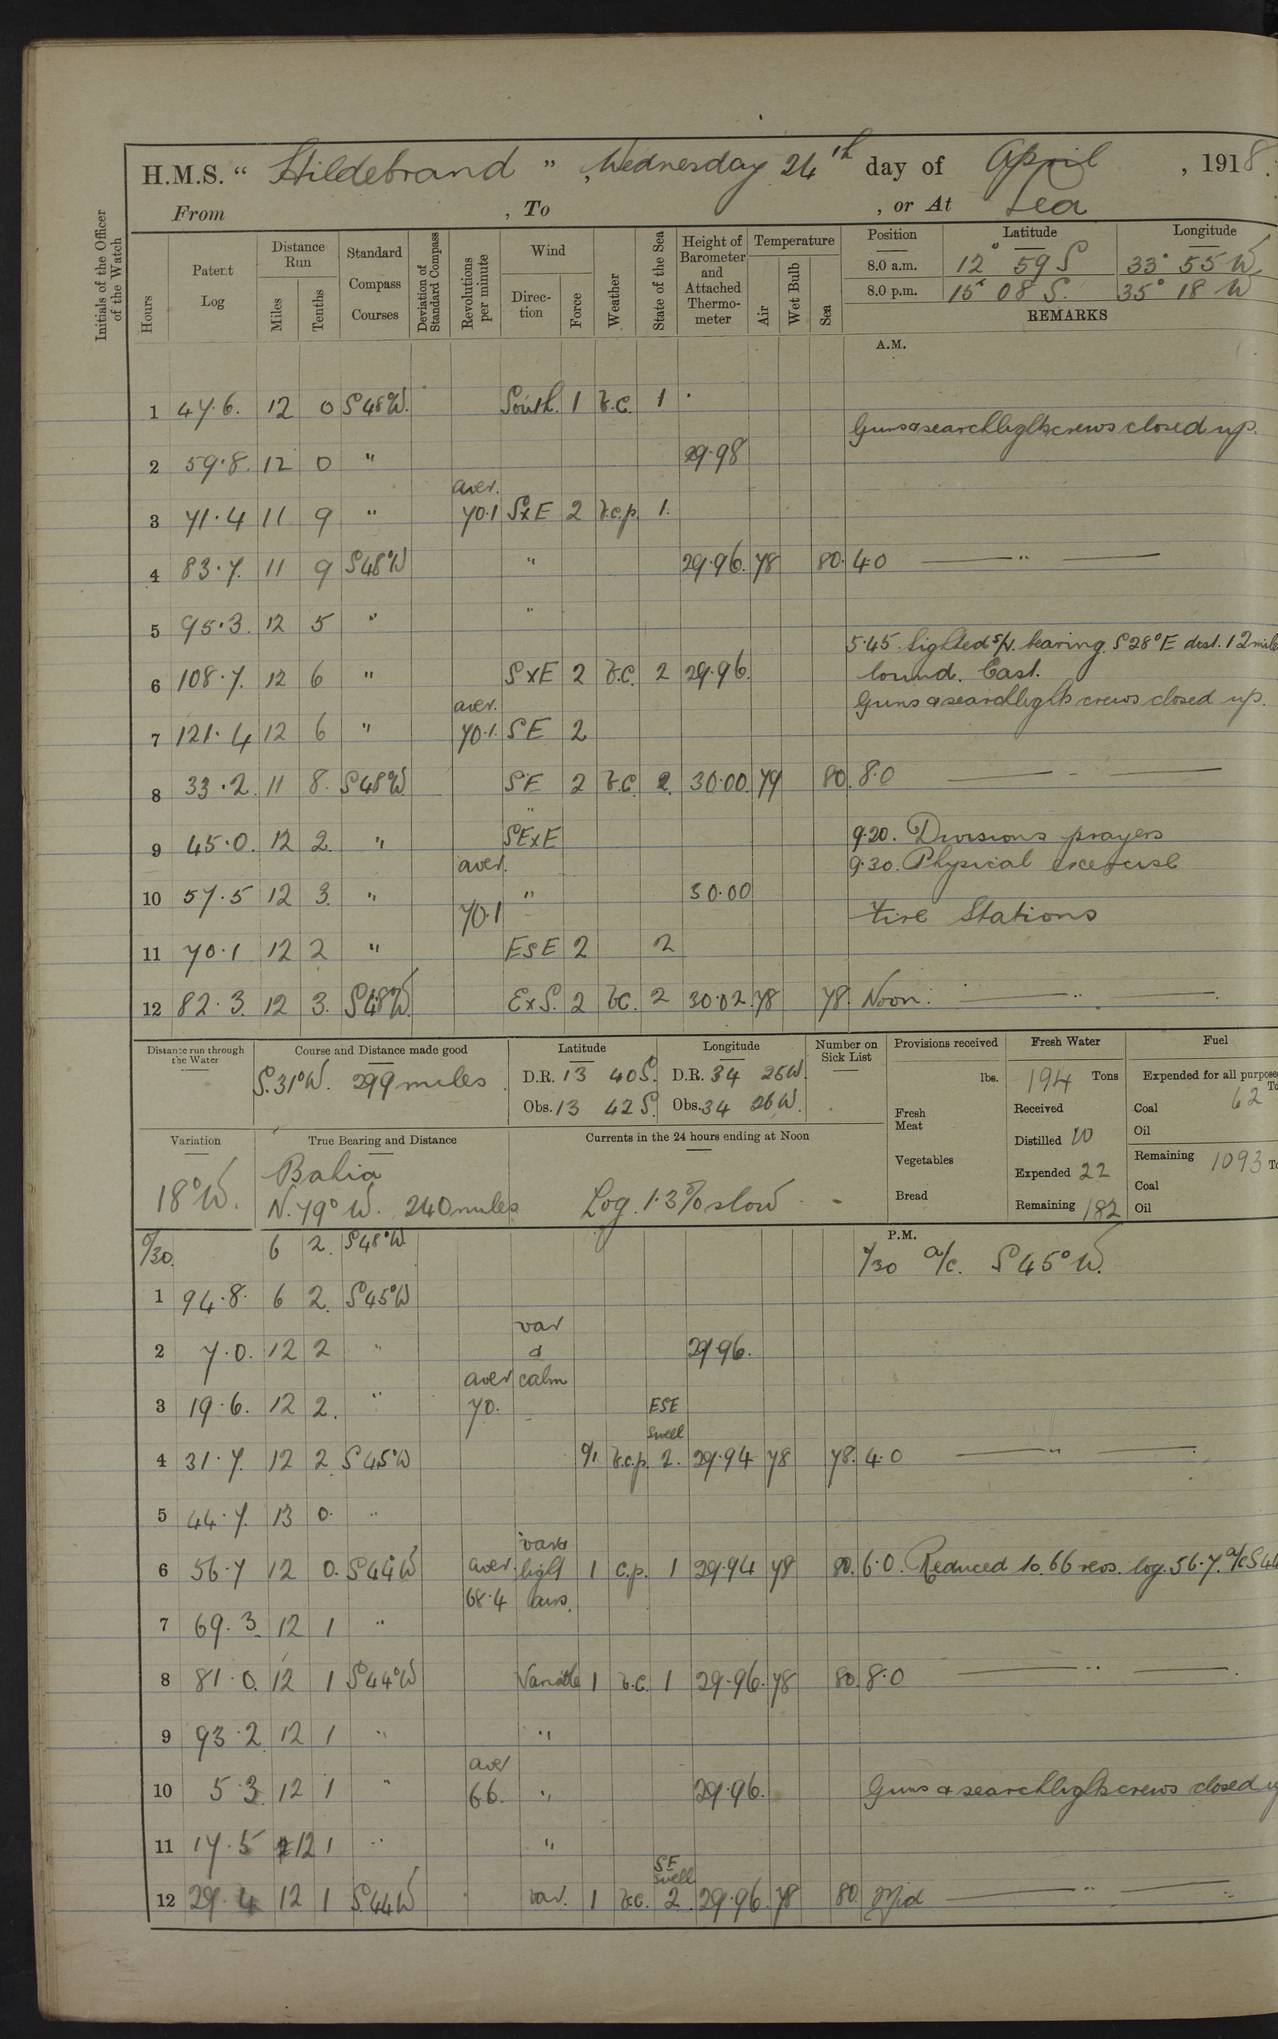 H.M.S. “ Hildebrand ” , Wednesday 24th day of April , 1918.
From , To , or At Sea
Initials of the Officer of the Watch
Hours
Patent Log
Distance Run
Miles
Tenths
Standard Compass Courses
Deviation of Standard Compass
Revolutions per minute
Wind
Direction
Force
Weather
State of the Sea
Height of Barometer and Attached Thermometer
Temperature
Air
Wet Bulb
Sea
Position Latitude Longitude
8.0 a.m. 12° 59 S 33° 55 W.
8.0 p.m. 15° 08 S. 35° 18 W
REMARKS
A.M.
1 47.6. 12 0 S48°W. South. 1 b.c. 1
Guns & searchlights crews closed up.
2 59.8. 12 0 " 29.98
aver.
3 71.4 11 9 " 70.1 SxE 2 b.c.p. 1.
4 83.7. 11 9 S48°W " 29.96. 78 80. 4.0 — " —
5 95.3. 12 5 " "
5.45. Sighted s/v. bearing. S28°E dist. 12 mile
6 108.7. 12 6 " SxE 2 b.c. 2 29.96. bound. East.
aver. Guns & searchlights crews closed up.
7 121.4 12 6 " 70.1. SE 2
8 33.2. 11 8. S48°W SE 2 b.c. 2. 30.00. 79 80. 8.0 — " —
"
9 45.0. 12 2. " SExE 9.20. Divisions prayers
aver. 9.30. Physical exercise
10 57.5 12 3. " 70.1 " 30.00
Fire Stations
11 70.1 12 2 " ESE 2 2
12 82.3. 12 3. S48°W. ExS. 2 bc. 2 30.02. 78 78. Noon. — " —
Distance run through the Water
Course and Distance made good
S.31°W. 299 miles.
Latitude
D.R. 13 40 S.
Obs. 13 42 S.
Longitude
D.R. 34 25 W.
Obs. 34 26 W.
Number on Sick List
Provisions received
lbs.
Fresh Meat
Vegetables
Bread
Fresh Water
194 Tons
Received
Distilled 10
Expended 22
Remaining 182
Fuel
Expended for all purpose
To
Coal 62
Oil
Remaining 1093 To
Coal
Oil
Variation
18°W.
True Bearing and Distance
Bahia
N.79°W. 240 miles
Currents in the 24 hours ending at Noon
Log. 1.3% slow. -
P.M.
0/30. 6 2. S48°W 0/30 a/c. S45°W.
1 94.8. 6 2. S45°W
var
2 7.0. 12 2 " & 29.96.
aver calm
3 19.6. 12 2. " 70. ESE
swell
4 31.7. 12 2. S45°W 0/1 b.c.p. 2. 29.94 78 78. 4.0 — " —
5 44.7. 13 0. "
6 56.7 12 0. S44°W aver. light 1 c.p. 1 29.94 78 80. 6.0. Reduced to 66 revs. log. 56.7. a/c S44
68.4 airs.
7 69.3. 12 1 "
8 81.0. 12 1 S44°W Variable 1 b.c. 1 29.96. 78 80. 8.0 — " —
9 93.2 12 1 " "
aver
10 5.3. 12 1 " 66. " 29.96. Guns & searchlights crews closed
11 17.5 12 1 " "
SE
swell
12 29.4 12 1 S.44W var. 1 b.c. 2 29.96. 78 80. Mid — " —